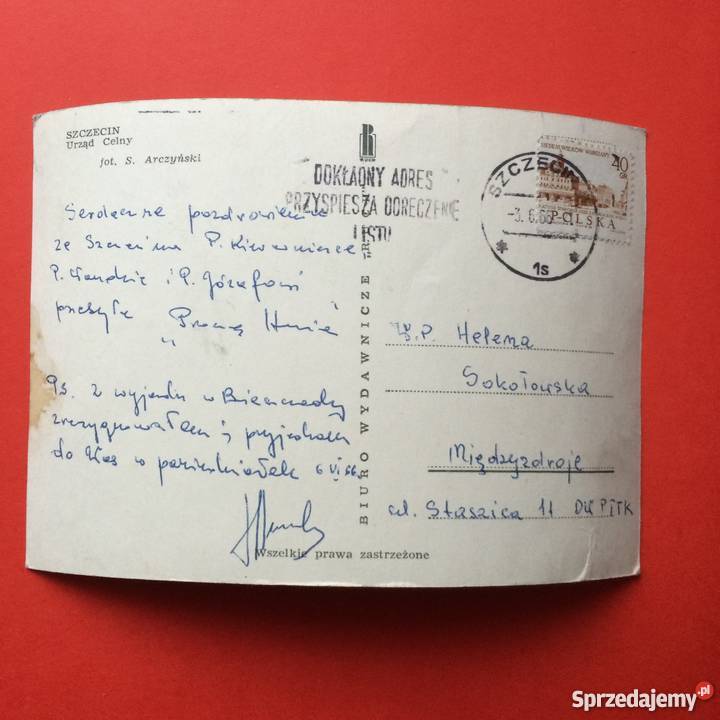 SZCZECIN
Urząd Celny
fot. S. Arczyński
Serdeczne pozdrowienia
ze Szczecina P. Kierowniczce
P. Wandzie i P. Józefowi
przesyła
Ps. z wyjazdu w Bieszczady
zrezygnowałem i przyjadę
do Was w poniedziałek 6 VI 66
Wszelkie prawa zastrzeżone
BIURO WYDAWNICZE „RUCH”
R
RUCH
DOKŁADNY ADRES
PRZYSPIESZA DORĘCZENIE
LISTU
SZCZECIN
-3.6.66
1s
40
GR
POLSKA
W.P. Helena
Sokołowska
Międzyzdroje
ul. Staszica 11
Sprzedajemy.pl